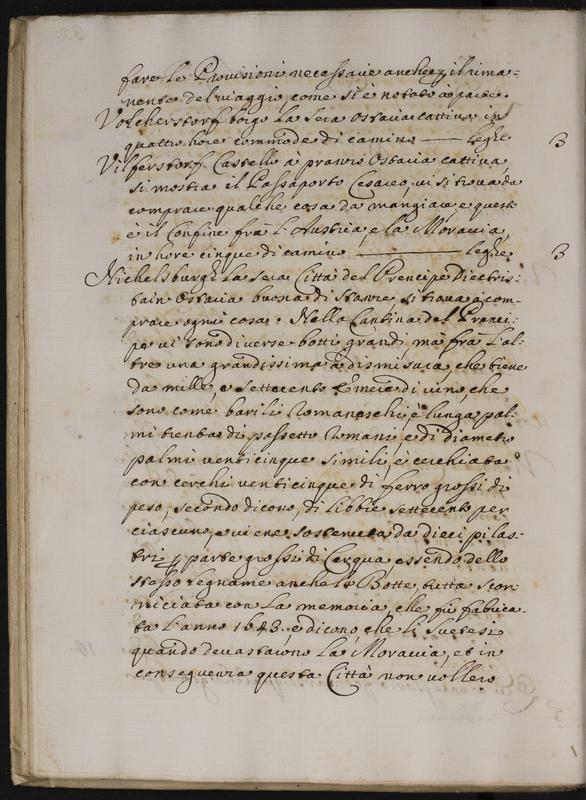 fare le Provisioni necessarie anche p il rima=
nente del viaggio, come si è notato à parte.
Volcherstorf borgo la sera Ostaria cattiva in
quattro hore commode di camino — leghe 3
Vilferstorf Castello à pranzo Ostaria cattiva,
si mostra il Passaporto Cesareo, vi si trova da
comprare qualche cosa da mangiare, e questo
è il Confine frà l'Austria, e la Moravia,
in hore cinque di camino — leghe 3
Nichelsburgh la sera Città del Prencipe Diectris:
tain Ostaria buona di stanze si trova à com=
prare ogni cosa. Nella Cantina del Prenci=
pe vi sono diverse botti grandi, mà frà l'al=
tre una grandissima à dismisura, che tiene
da mille, e settecento di vino, che
sono come barili Romaneschi, è lunga pal=
mi trenta di passetto Romani, e di diametro
palmi venticinque simili, è cerchiata
con cerchi venticinque di ferro grossi di
peso, secondo dicono, di libbre settecento per
ciascuno, e viene sostenuta da dieci pilas=
tri p parte grossi di Cerqua essendo dello
stesso legname anche la Botte, tutta scor=
niciata con la memoria, che fù fabrica=
ta l'anno 1643. e dicono, che li Svetesi
quando devastarono la Moravia, et in
conseguenza questa Città non vollero